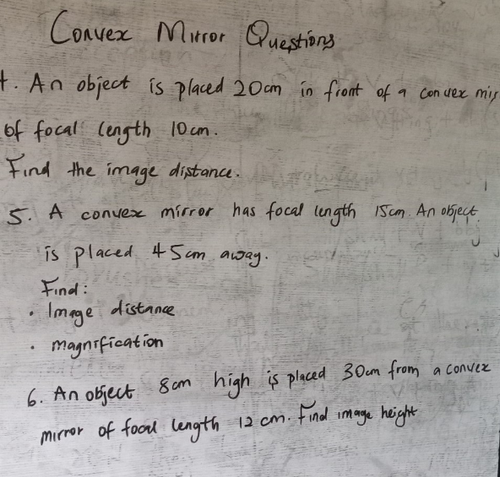 Convex Mirror Questions
4. An object is placed 20cm in front of a convex mir
of focal length 10cm.
Find the image distance.
5. A convex mirror has focal length 15cm. An object
is placed 45cm away.
Find:
• Image distance
• magnification
6. An object 8cm high is placed 30cm from a convex
mirror of focal length 12cm. Find image height